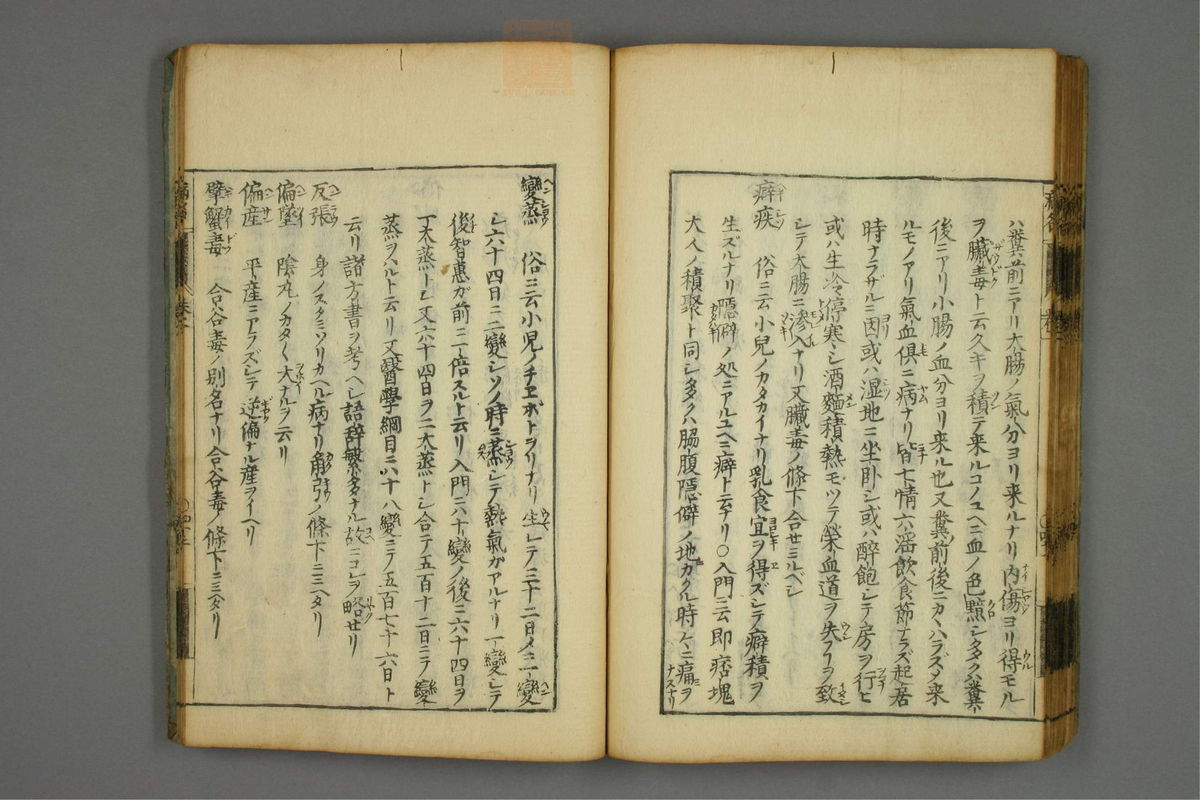 ハ糞前ニアリ大腸ノ氣分ヨリ来ルナリ内傷ヨリ得モル
ヲ臓毒ト云久キヲ積テ来ルコノユヘニ血ノ色黯シ多クハ糞
後ニアリ小腸ノ血分ヨリ来ル也又糞前後ニカヽハラズタ来
ルモノアリ氣血俱ニ病ナリ皆七情六淫飲食節ナラズ起居
時ナラザルニ因或ハ湿地ニ坐卧シ或ハ醉飽シテ房ヲ行ヒ
或ハ生冷停寒シ酒麵積熱モツテ榮血道ヲ失フヿヲ致
シテ大腸ニ滲入ナリ又臓毒ノ條下合セミルベシ
癖疾 俗ニ云小兒ノカタカイナリ乳食宜ヲ得ズシテ癖積ヲ
生ズルナリ隱僻ノ処ニアルユヘニ癖ト云ナリ○入門ニ云即痞塊
大人ノ積聚ト同シ多クハ脇腹隱僻ノ地カクル時々ニ痛ヲ
ナスナリ
變蒸 俗ニ云小児ノチヱボトヲリナリ生レテ三十二日メニ一變
シ六十四日ニ二變シソノ時ニ蒸シテ熱氣ガアルナリ一變シテ
後智惠ガ前ニ一倍スルト云リ入門ニハ十變ノ後ニ六十四日ヲ
一大蒸トシ又六十四日ヲ二大蒸トシ合テ五百十二日ニテ變
蒸ヲハルト云リ又醫學綱目ニハ十八變ニテ五百七十六日ト
云リ諸方書ヲ考ヘシ語辞繁多ナル故ニコレヲ略セリ
反張 身ノスクミソリカヘル病ナリ角弓ノ條下ニミヘタリ
偏墜 陰丸ノカタ〱大ナルヲ云リ
偏産 平産ニアラズシテ逆偏ナル産ヲイヘリ
擘蟹毒 合谷毒ノ別名ナリ合谷毒ノ條下ニミヘタリ